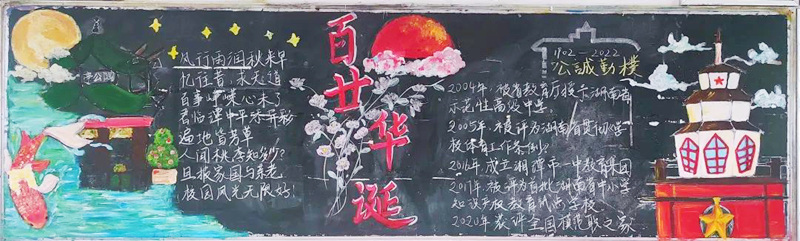 风行雨润秋来早
忆往昔，求天道
百事
君临潭中
遍地皆芳草
人间桃李知多少？
且报家国与桑老
校园风光无限好！
百廿华诞
1902-2022
公誠勤樸
2004年，被省教育厅授予湖南省
示范性高级中学。
2005年，被评为湖南省贯彻《学
校体育工作条例》
2016年成立湘潭市一中教育集团
2017年，被评为首批湖南省中小学
知识产权教育试点学校、
2020年获评全国模范职工之家